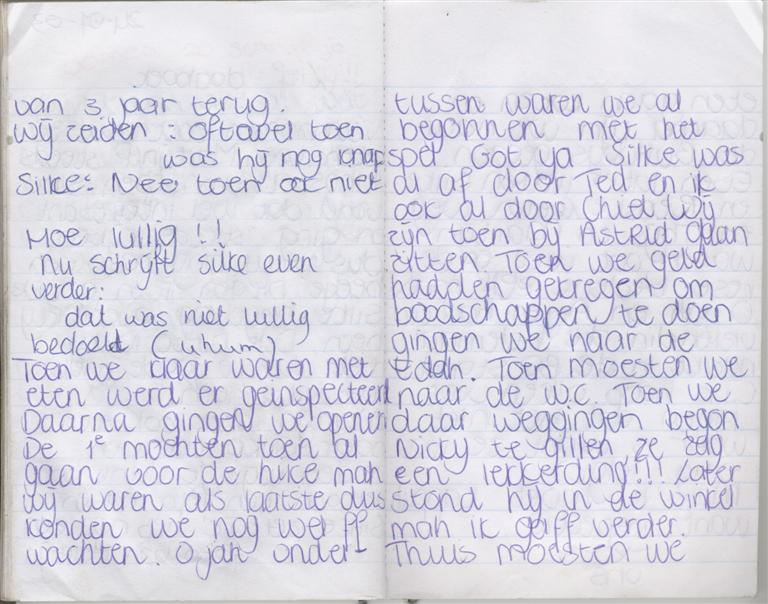 van 3 jaar terug.
Wij zeiden: oftewel toen
was hij nog knap
Silke: Nee toen ook niet
Hoe lullig!!
nu schrijft silke even
verder:
dat was niet lullig
bedoeld (uhum)
Toen we klaar waren met
eten werd er geïnspecteerd
Daarna gingen we openen
De 1e mochten toen al
gaan voor de hike mah
wij waren als laatste dus
konden we nog wel ff
wachten. O jah onder-
tussen waren we al
begonnen met het
spel Got ya Silke was
al af door Ted en ik
ook al door Chiel. Wij
zijn toen bij Astrid gaan
zitten. Toen we geld
hadden gekregen om
boodschappen te doen
gingen we naar de
Edah. Toen moesten we
naar de w.c. Toen we
daar weggingen begon
Nicky te gillen, ze zag
een lekkerding!!! Later
stond hij in de winkel
mah ik ga ff verder.
Thuis moesten we